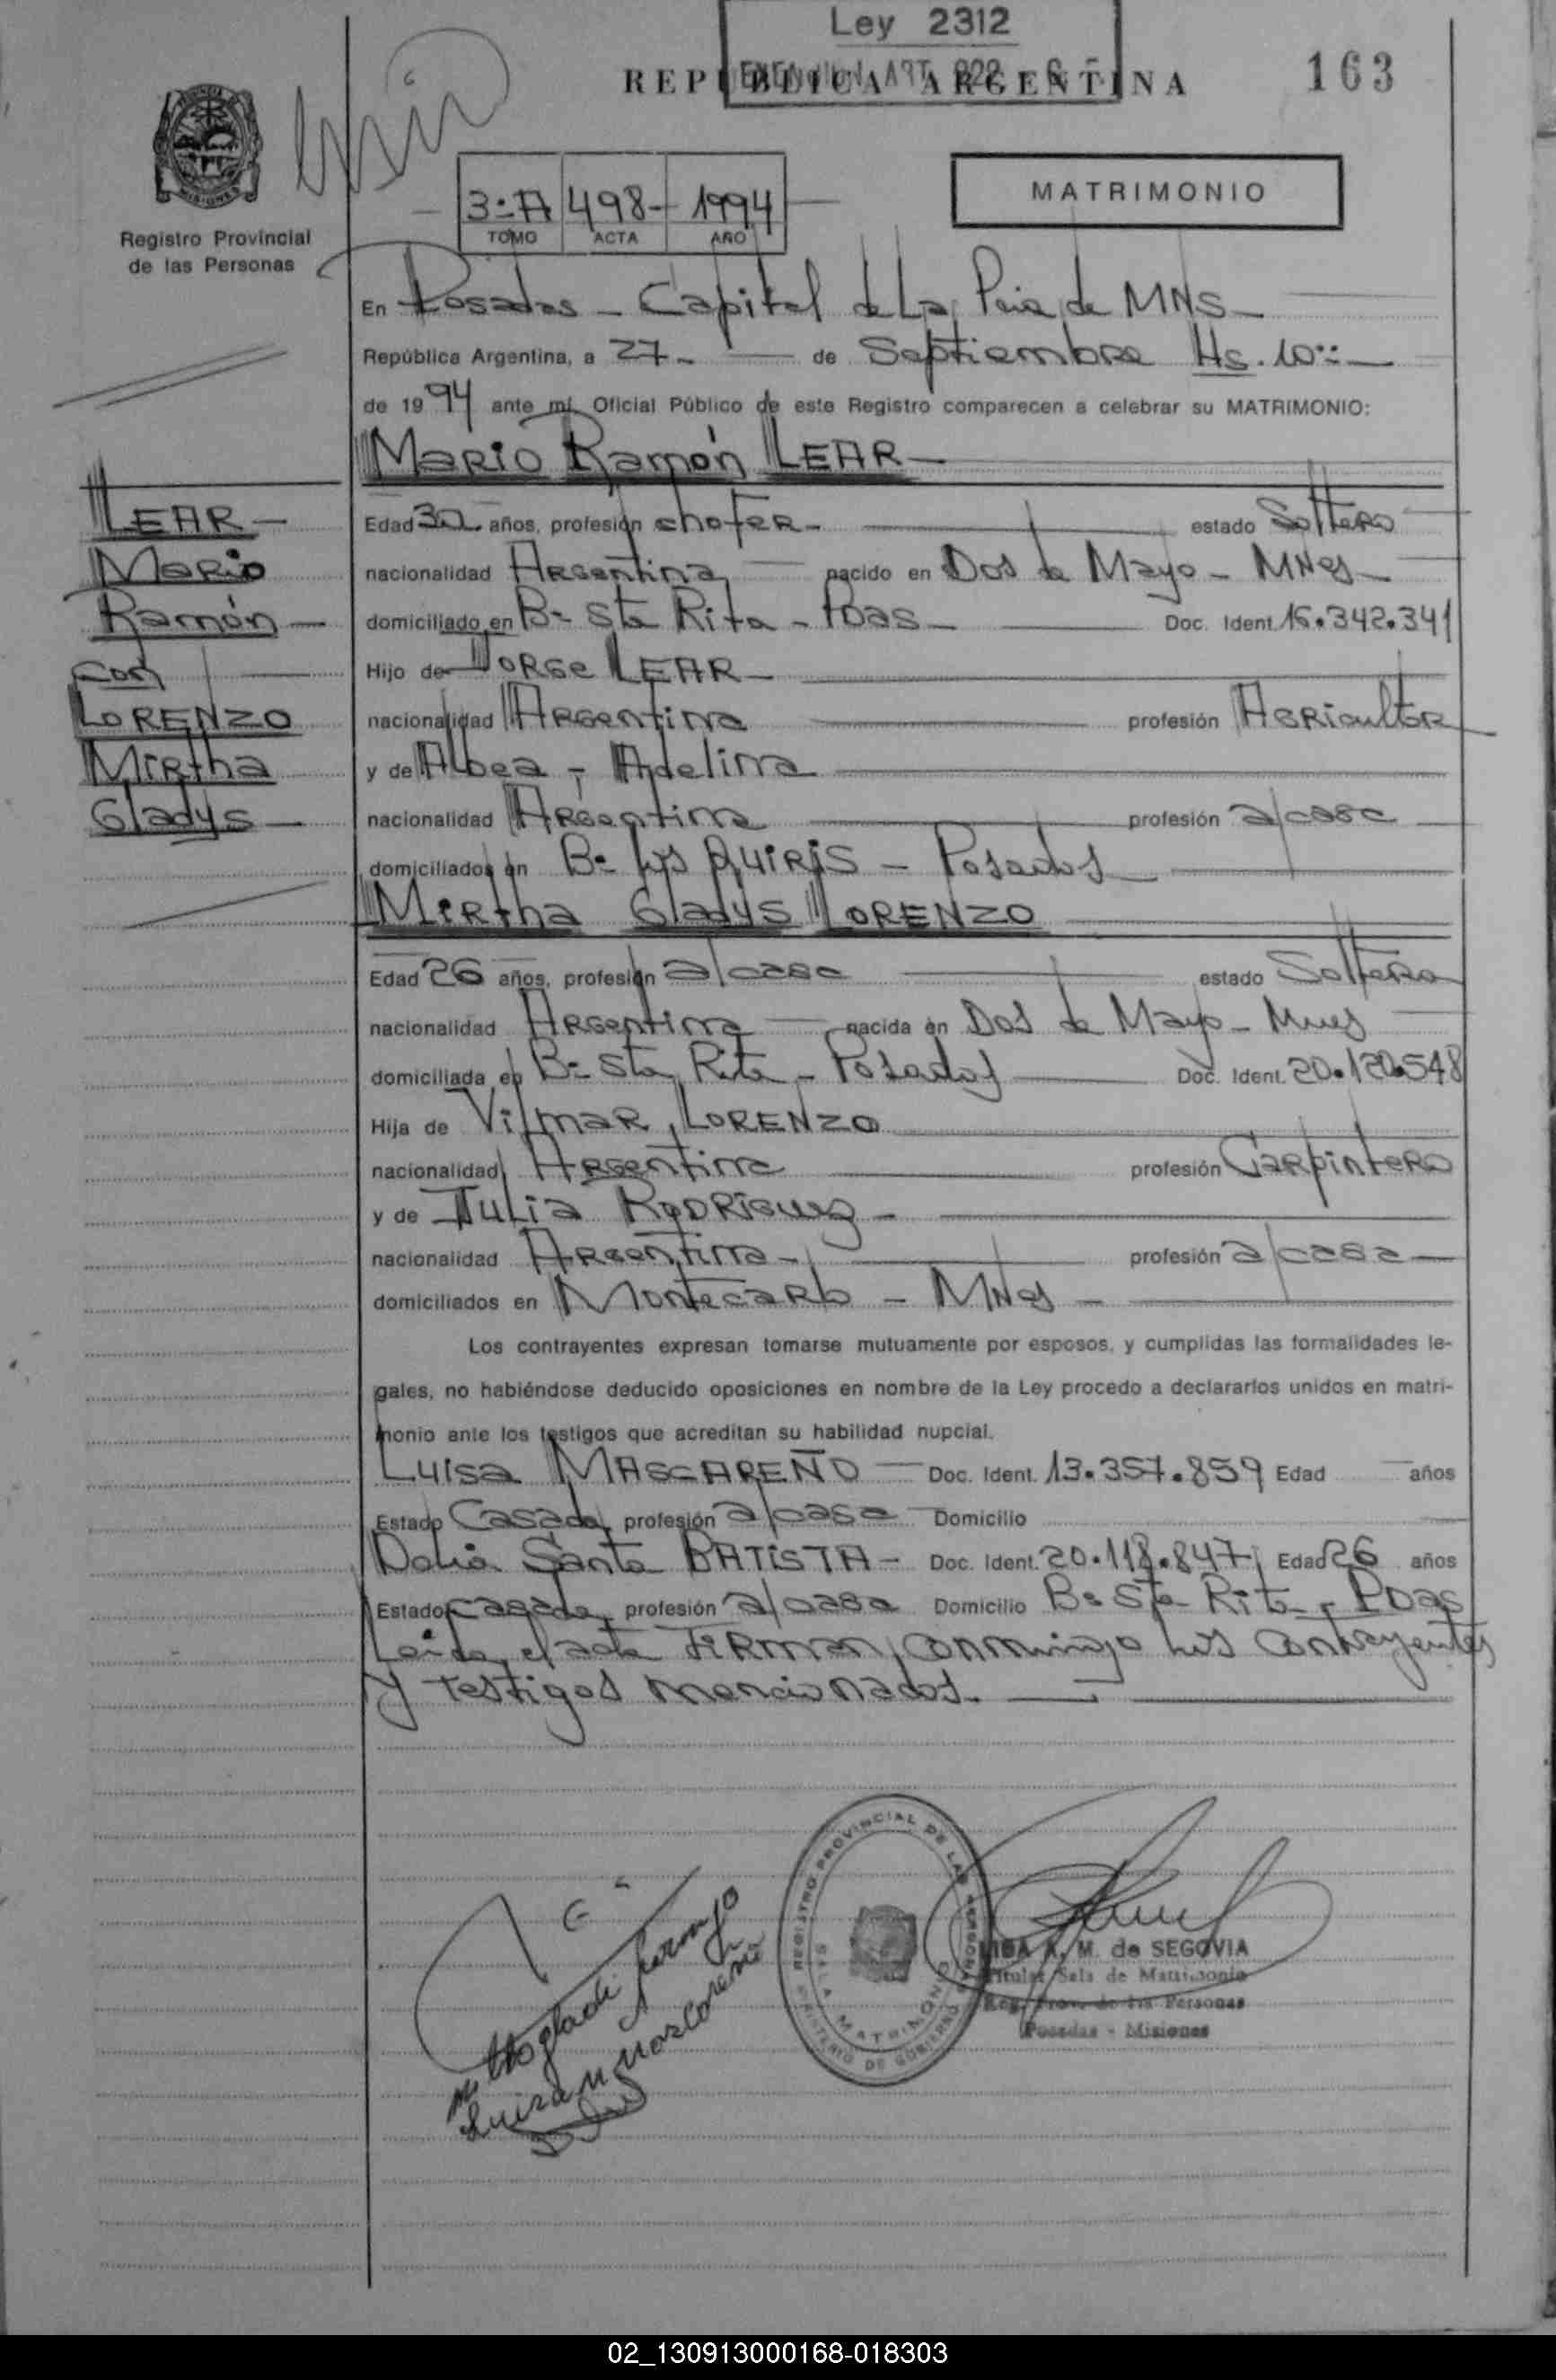 Ley 2312
REPUBLICA ARGENTINA
163
Registro Provincial
de las Personas
3º A 498- 1994
TOMO ACTA AÑO
MATRIMONIO
En Posadas - Capital de La Pcia de MNS -
República Argentina, a 27 - de Septiembre Hs. 10
de 1994 ante mi Oficial Público de este Registro comparecen a celebrar su MATRIMONIO:
Mario Ramón LEAR -
LEAR -
Mario
Ramón -
con
LORENZO
Mirtha
Gladys -
Edad 30 años, profesión chofer - estado Soltero
nacionalidad Argentina nacido en Dos de Mayo - MNes -
domiciliado en Bº Sta Rita - Pdas - Doc. Ident. 16.342.341
Hijo de Jorge LEAR -
nacionalidad Argentina profesión Agricultor
y de Adelina
nacionalidad Argentina profesión a/casa
domiciliados en Bº Los - Posadas -
Mirtha Gladys LORENZO
Edad 26 años, profesión a/casa estado Soltera
nacionalidad Argentina nacida en Dos de Mayo - Mnes
domiciliada en Bº Sta Rita - Posadas Doc. Ident. 20.120.548
Hija de Vilmar LORENZO
nacionalidad Argentina profesión Carpintero
y de Julia RODRIGUEZ -
nacionalidad Argentina - profesión a/casa -
domiciliados en Montecarlo - MNes -
Los contrayentes expresan tomarse mutuamente por esposos, y cumplidas las formalidades le-
gales, no habiéndose deducido oposiciones en nombre de la Ley procedo a declararlos unidos en matri-
monio ante los testigos que acreditan su habilidad nupcial.
Luisa MASCAREÑO - Doc. Ident. 13.357.859 Edad años
Estado Casada profesión a/casa Domicilio
Santa BATISTA - Doc. Ident. 20.118.847 Edad 26 años
Estado casada profesión a/casa Domicilio Bº Sta Rita - Pdas
Leida el acta firman conmigo los contrayentes
y testigos mencionados.
REGISTRO PROVINCIAL DE LAS PERSONAS
SALA MATRIMONIO
MINISTERIO DE GOBIERNO
A. M. de SEGOVIA
Titular Sala de Matrimonio
Reg. Prov. de las Personas
Posadas - Misiones
02_130913000168-018303